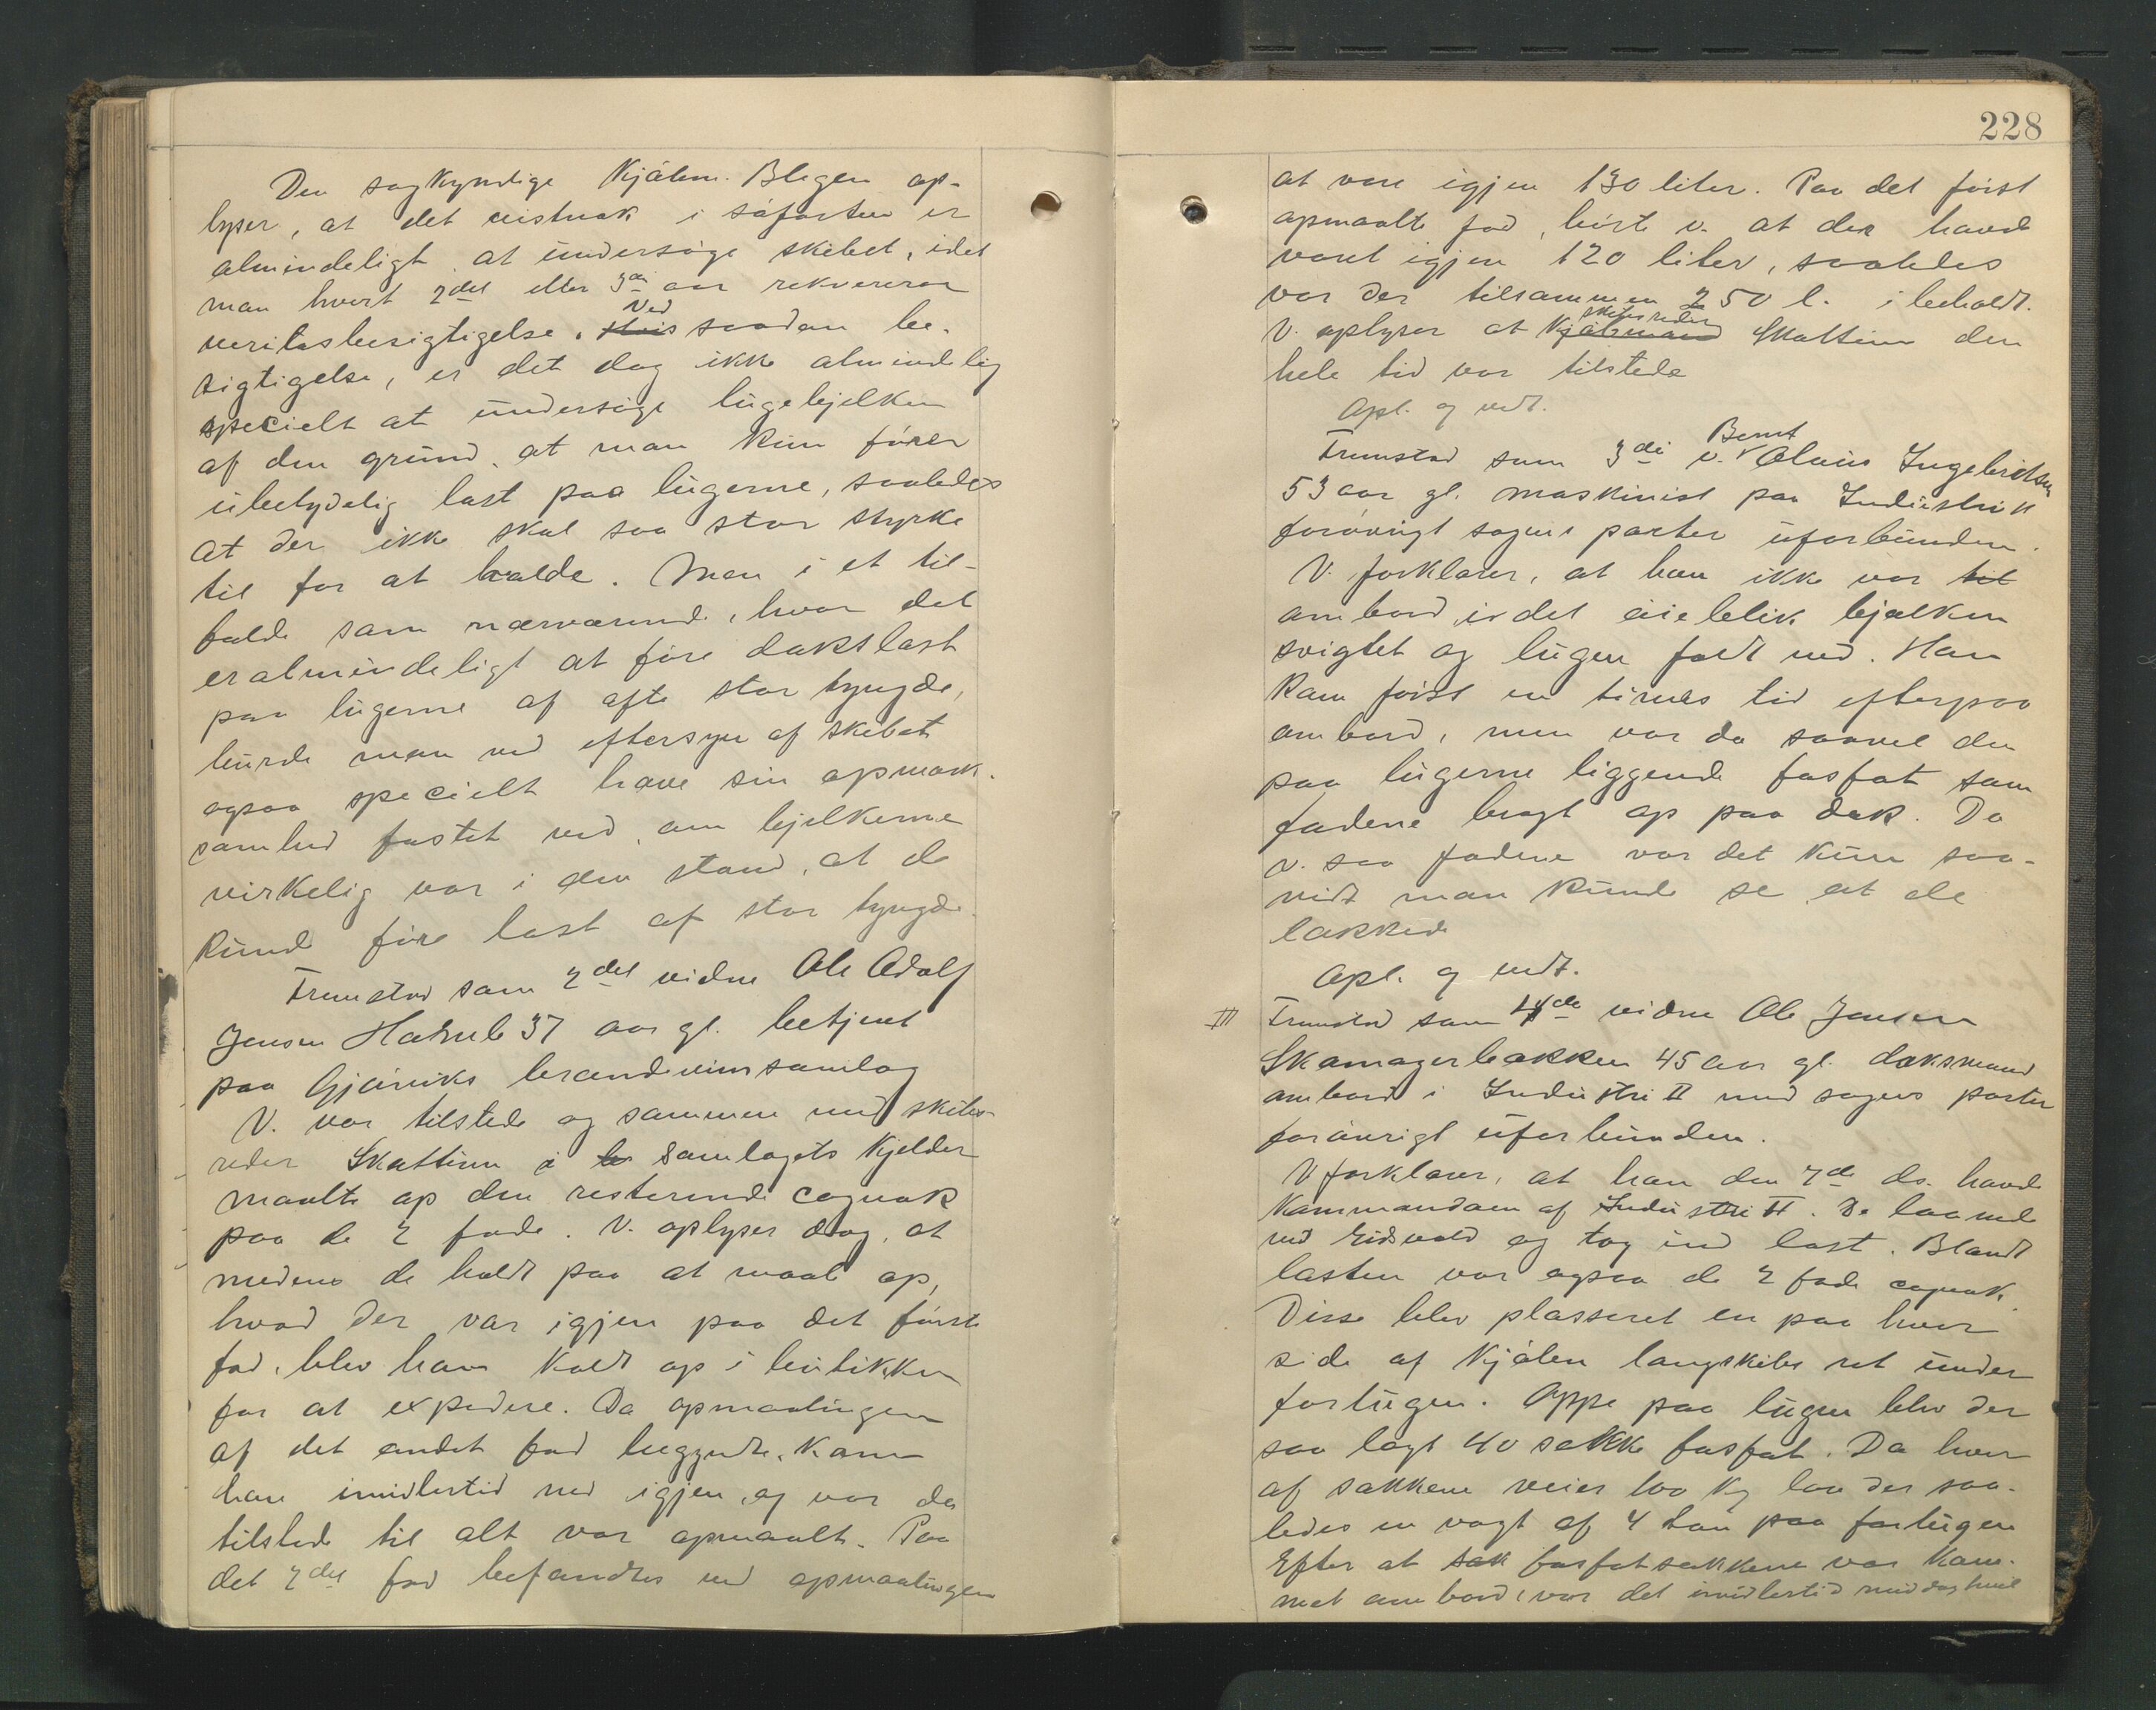 Den sagkyndige Kjøbm. Blegen op-
lyser, at det vistnok i søfarten er
almindeligt at undersøge skibet, idet
man hvert 2det eller 3die aar rekvirerer
veritasbesigtigelse. Ved saadan be-
sigtigelse, er det dog ikke almindelig
specielt at undersøge lugebjelken
af den grund, at man kun fører
ubetydelig last paa lugerne, saaledes
at der ikke skal saa stor styrke
til for at holde. Men i et til-
fælde som nærværende, hvor det
er almindeligt at føre dækslast
paa lugerne af ofte stor tyngde,
burde man ved eftersyn af skibet
ogsaa specielt have sin opmærk-
somhed fæstet ved, om bjelkerne
virkelig var i den stand, at de
kunde føre last af stor tyngde.
Fremstod som 2det vidne Ole Adolf
Jensen 37 aar gl. betjent
paa Gjøviks brændevinssamlag
V. var tilstede og sammen med skibs-
reder Skattum i samlagets kjelder
maalte op den resterende cognak
paa de 2 fade. V. oplyser dog, at
medens de holdt paa at maale op,
hvad der var igjen paa det første
fad, blev han kaldt op i butikken
for at expedere. Da opmaalingen
af det andet fad begyndte, kom
han imidlertid ned igjen, og var da
tilstede til alt var opmaalt. Paa
det 2det fad befandtes ved opmaalingen
228
at være igjen 130 liter. Paa det først
opmaalte fad, hørte v. at der havde
været igjen 120 liter, saaledes
var der tilsammen 250 l. i behold.
skibsreder
V. oplyser at Kjøbmand Skattum den
hele tid var tilstede
Opl. og vedt.
Bernt
Fremstod som 3die v. Olaus Ingebrictsen
53 aar gl. maskinist paa Industri II
forøvrigt sagens parter uforbunden.
V. forklarer, at han ikke var til
ombord i det øieblik bjælken
svigtet og lugen faldt ned. Han
kom først en times tid efterpaa
ombord, men var da saavel den
paa lugerne liggende fosfat som
fadene bragt op paa dæk. Da
v. saa fadene var det kun saa-
vidt man kunde se at de
lækkede
Opl. og vedt.
III Fremstod som 4de vidne Ole Jensen
Skomagerbakken 45 aar gl. dæksmand
ombord i Industri II med sagens parter
forøvrigt uforbunden.
V forklarer, at han den 7de ds. havde
Kommandoen af Industri II. De laa nede
ved Eidsvold og tog ind last. Blandt
lasten var ogsaa de 2 fade cognak.
Disse blev plasseret en paa hver
side af Kjølen langskibs ret under
forlugen. Oppe paa lugen blev der
saa lagt 40 sække fosfat. Da hver
af sækkene veier 100 kg laa der saa-
ledes en vægt af 4 ton paa forlugen
Efter at sæk fosfatsækkene var kom-
met ombord, var det imidlertid middagshvil